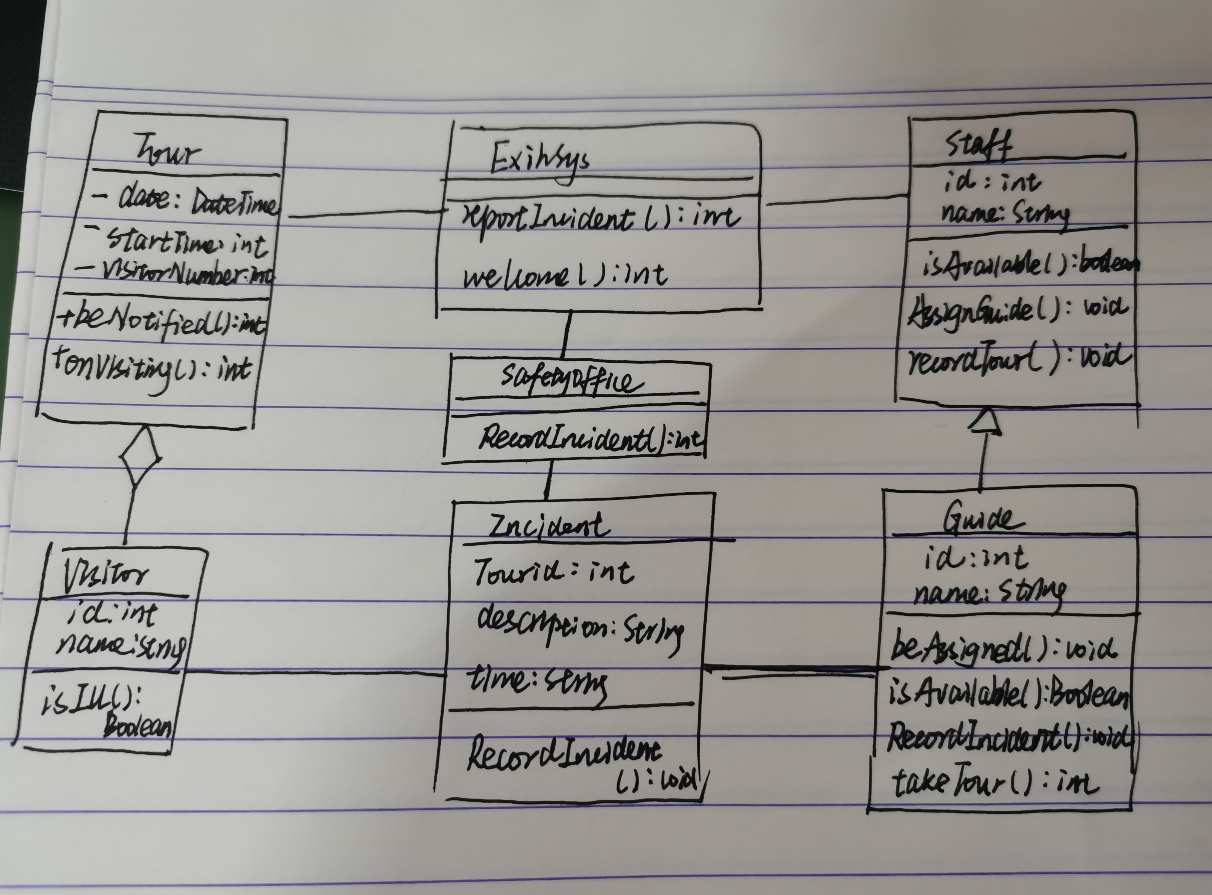 Tour
- date: DateTime
- startTime: int
- VisitorNumber: int
+beNotified(): int
+onVisiting(): int
ExihSys
reportIncident(): int
welcome(): int
Staff
id: int
name: String
isAvailable(): boolean
AssignGuide(): void
recordTour(): void
SafetyOffice
RecordIncident(): int
Visitor
id: int
name: String
isIll():
Boolean
Incident
Tourid: int
description: String
time: String
RecordIncident
(): void
Guide
id: int
name: String
beAssigned(): void
isAvailable(): Boolean
RecordIncident(): void
takeTour(): int